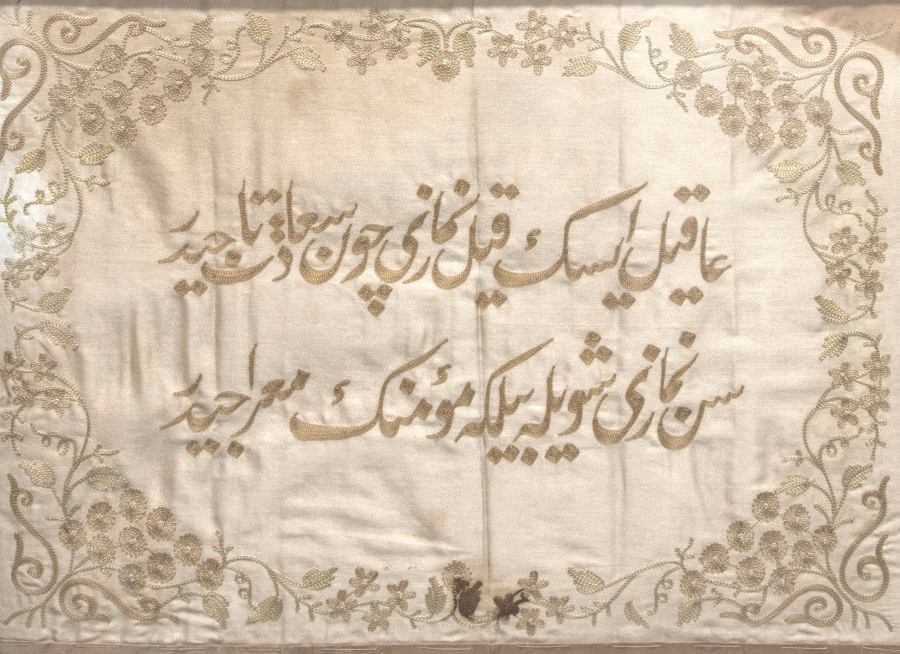 عاقیل ایسك قیل نمازی چون سعادت تاجیدر
سن نمازی شویله بیلكه مؤمنك معراجیدر